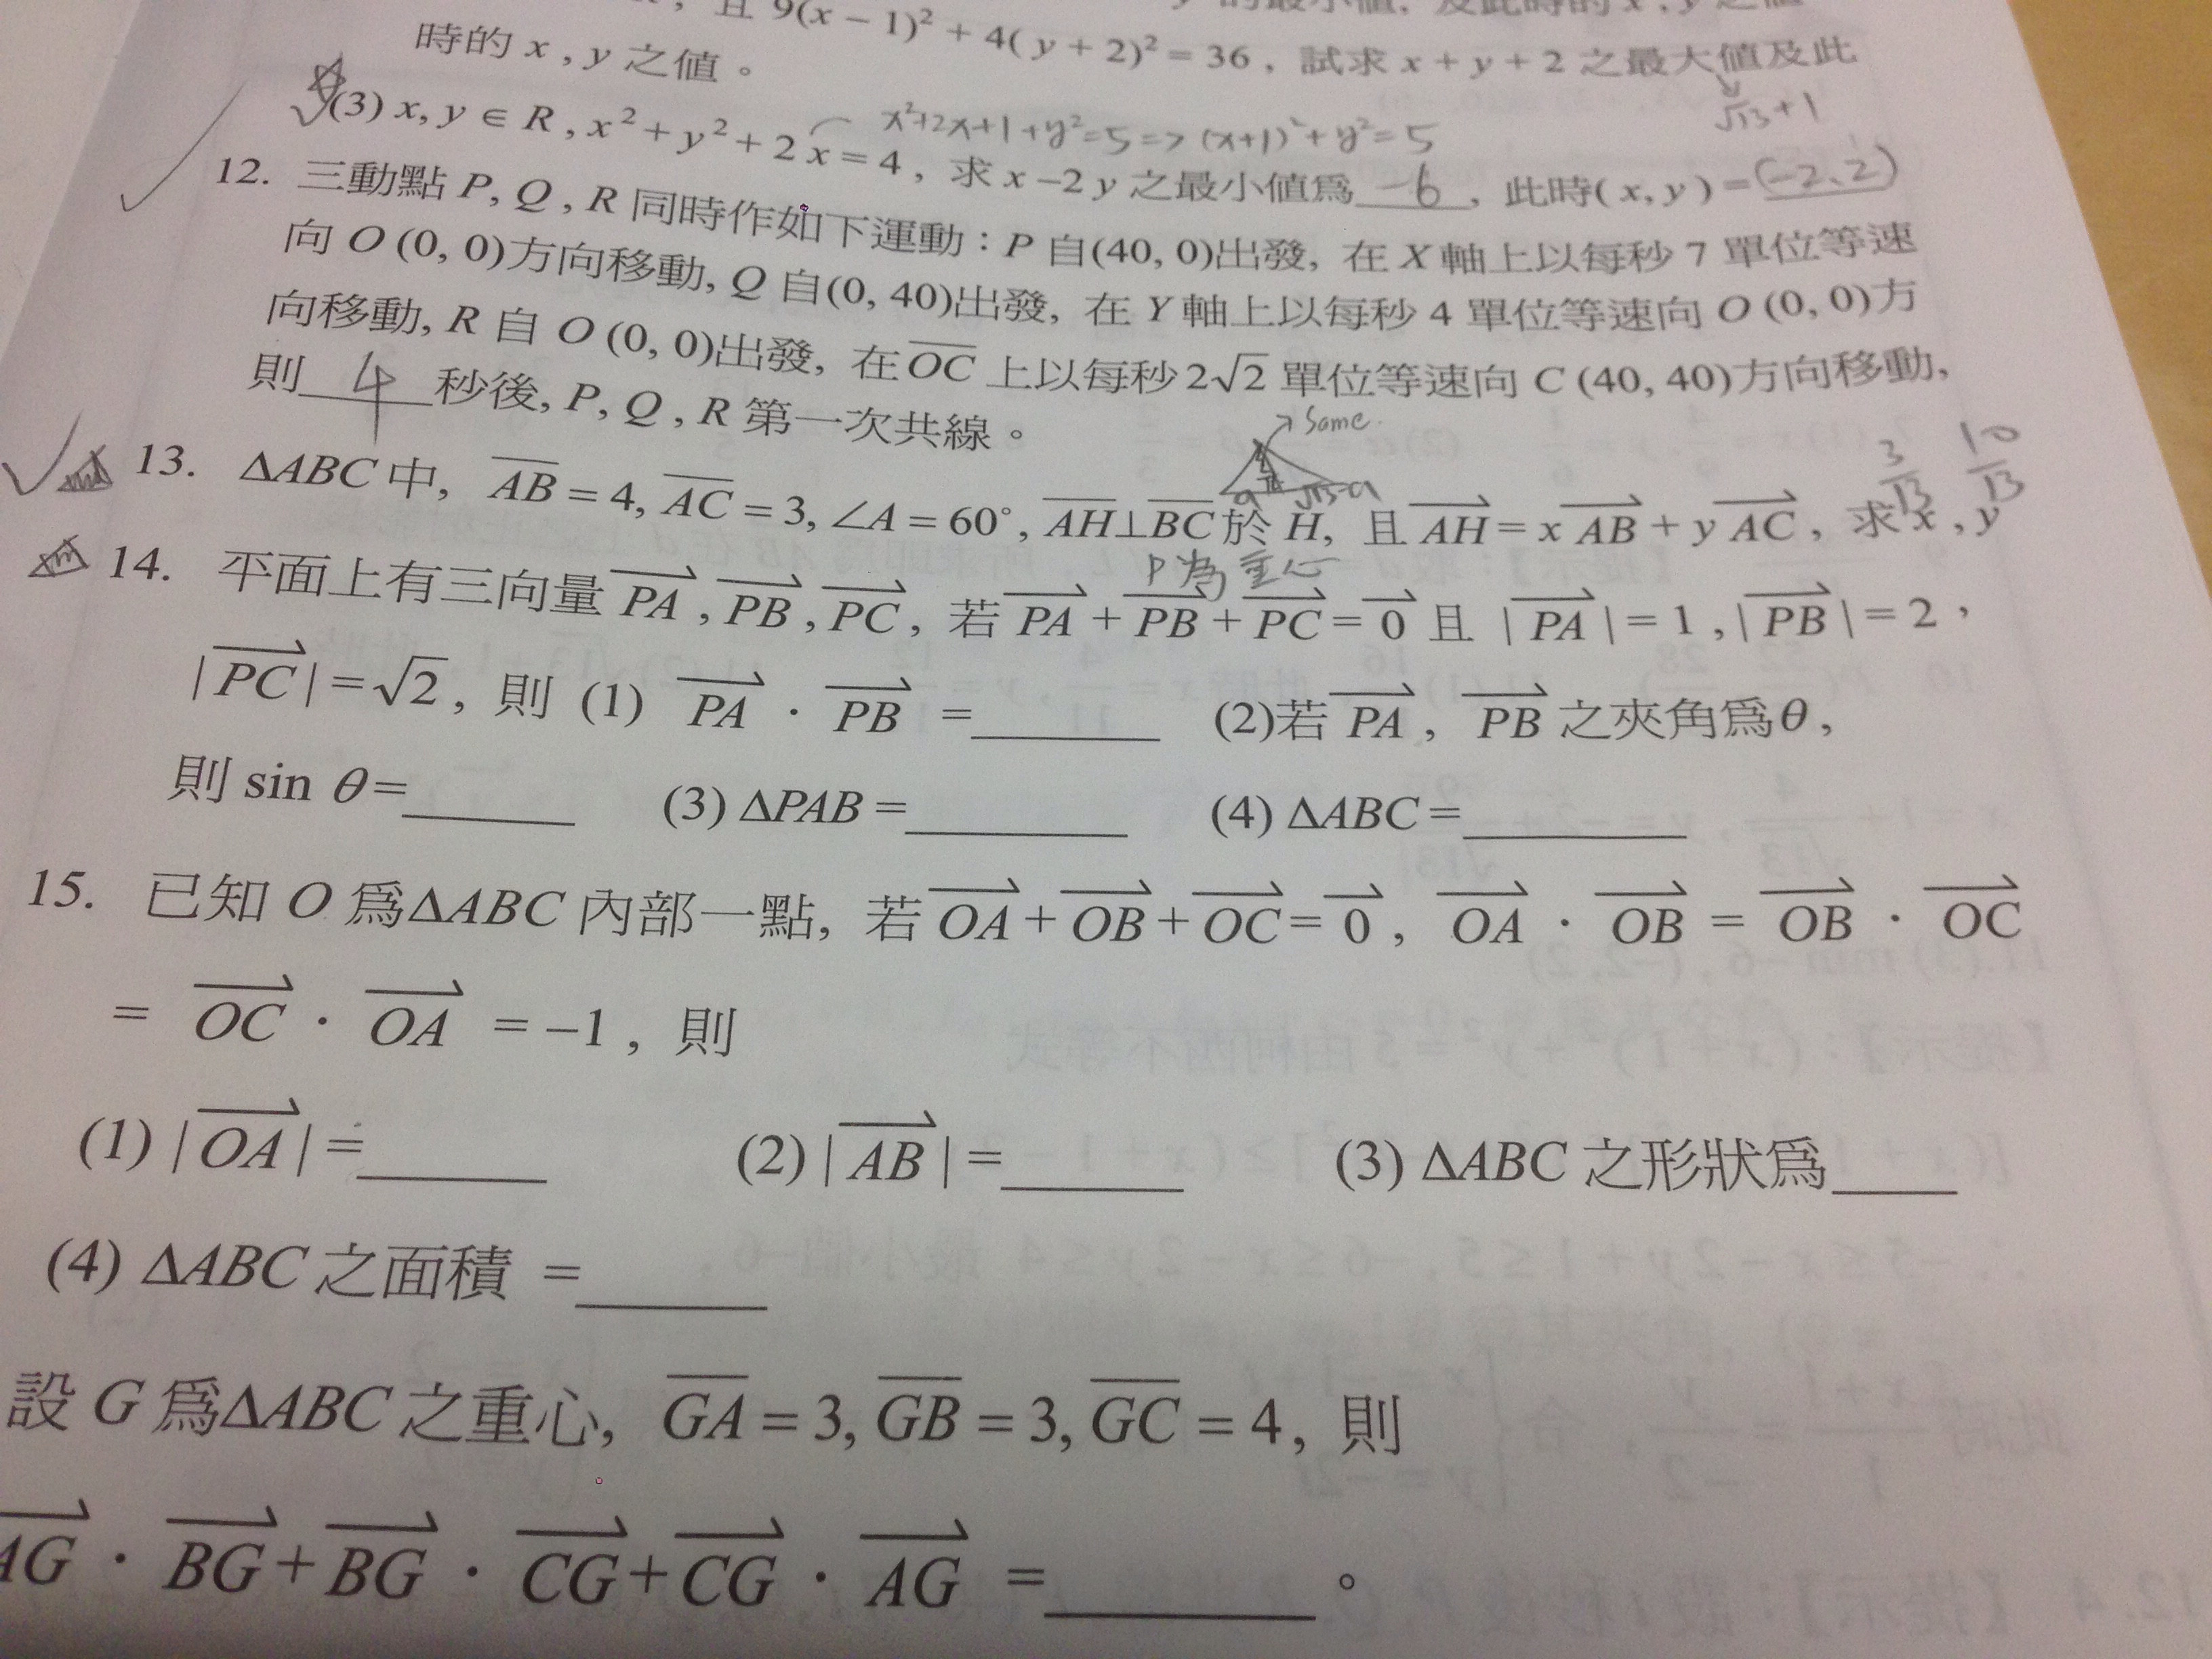 且 9(x − 1)² + 4( y + 2)² = 36 , 試求 x + y + 2 之最大值及此
時的 x , y 之值。
√13+1
(3) x, y ∈ R , x² + y² + 2 x = 4 , 求 x −2 y 之最小值爲 -6 , 此時( x, y ) = (-2、2)
x²+2x+1+y²=5=>(x+1)²+y²=5
12. 三動點 P, Q , R 同時作如下運動：P 自(40, 0)出發, 在 X 軸上以每秒 7 單位等速
向 O (0, 0)方向移動, Q 自(0, 40)出發, 在 Y 軸上以每秒 4 單位等速向 O (0, 0)方
向移動, R 自 O (0, 0)出發, 在 OC 上以每秒 2√2 單位等速向 C (40, 40)方向移動,
則 4 秒後, P, Q , R 第一次共線。
Same
a √13-a
3/13 10/13
13. ΔABC 中, AB = 4, AC = 3, ∠A = 60°, AH⊥BC 於 H, 且 AH = x AB + y AC , 求 x , y
P為重心
14. 平面上有三向量 PA , PB , PC , 若 PA + PB + PC = 0 且 | PA | = 1 , | PB | = 2 ,
| PC | = √2 , 則 (1) PA · PB = (2)若 PA , PB 之夾角爲θ ,
則 sin θ = (3) ΔPAB = (4) ΔABC =
15. 已知 O 爲ΔABC 內部一點, 若 OA + OB + OC = 0 , OA · OB = OB · OC
= OC · OA = −1 , 則
(1) | OA | = (2) | AB | = (3) ΔABC 之形狀爲
(4) ΔABC 之面積 =
設 G 爲ΔABC 之重心, GA = 3, GB = 3, GC = 4, 則
AG · BG + BG · CG + CG · AG = 。